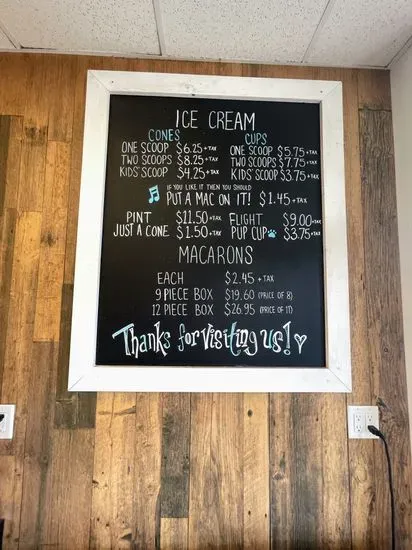 ICE CREAM
CONES CUPS
ONE SCOOP $6.25+TAX ONE SCOOP $5.75+TAX
TWO SCOOPS $8.25+TAX TWO SCOOPS $7.75+TAX
KIDS' SCOOP $4.25+TAX KIDS' SCOOP $3.75+TAX
IF YOU LIKE IT THEN YOU SHOULD
PUT A MAC ON IT! $1.45+TAX
PINT $11.50+TAX FLIGHT $9.00+TAX
JUST A CONE $1.50+TAX PUP CUP $3.75+TAX
MACARONS
EACH $2.45+TAX
9 PIECE BOX $19.60 (PRICE OF 8)
12 PIECE BOX $26.95 (PRICE OF 11)
Thanks for visiting us!